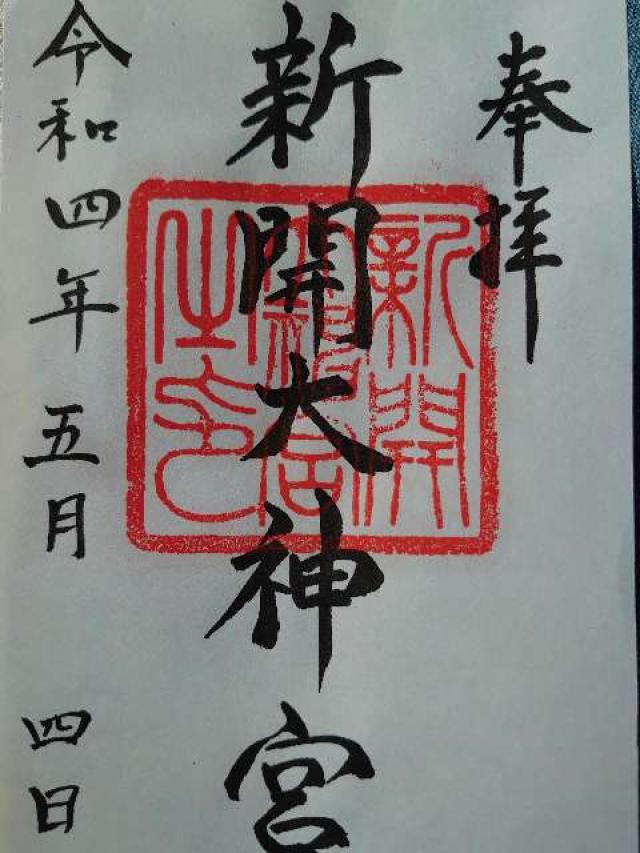 奉拝
新開大神宮
令和四年五月四日
新開
之印